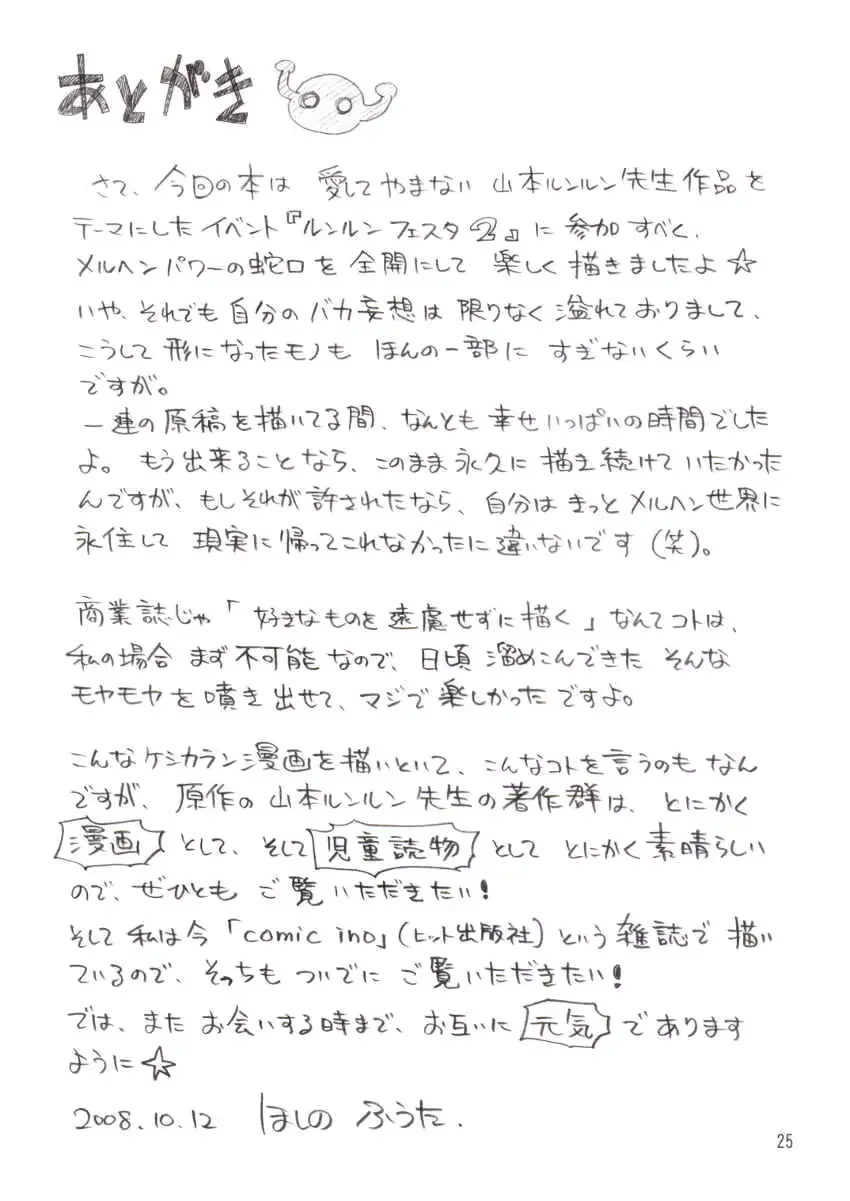 あとがき
さて、今回の本は 愛してやまない 山本ルンルン先生作品を
テーマにした イベント『ルンルン フェスタ2』に 参加 すべく、
メルヘンパワーの蛇口を 全開にして 楽しく 描きましたよ☆
いや、それでも 自分の バカ妄想は 限りなく 溢れて おりまして、
こうして 形になった モノも ほんの一部に すぎないくらい
ですが。
一連の原稿を描いてる間、なんとも 幸せいっぱいの時間でした
よ。 もう出来ることなら、このまま 永久に 描き続けて いたかった
んですが、もしそれが許されたなら、自分は きっと メルヘン世界に
永住して 現実に帰ってこれなかったに違いないです (笑)。
商業誌じゃ「好きなものを 遠慮せずに描く」なんてコトは、
私の場合 まず不可能なので、日頃 溜めこんできた そんな
モヤモヤを 噴き出せて、マジで 楽しかったですよ。
こんなケシカラン漫画を 描いといて、こんなコトを言うのも なん
ですが、原作の 山本ルンルン 先生の著作群は、とにかく
漫画 として、そして 児童読物 として とにかく 素晴らしい
ので、ぜひとも ご覧いただきたい!
そして 私は今「comic ino」(ヒット出版社)という 雑誌で 描い
ているので、そっちも ついでに ご覧いただきたい!
では、また お会いする時まで、お互いに 元気 で あります
ように☆
2008.10.12 ほしの ふうた.
25